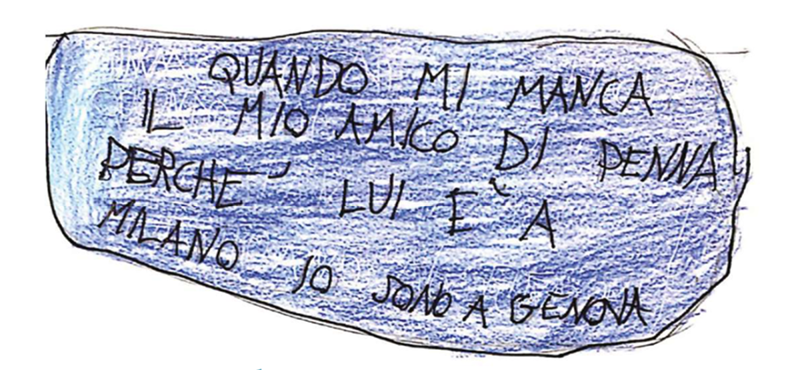 QUANDO MI MANCA
IL MIO AMICO DI PENNA
PERCHE' LUI E` A
MILANO IO SONO A GENOVA